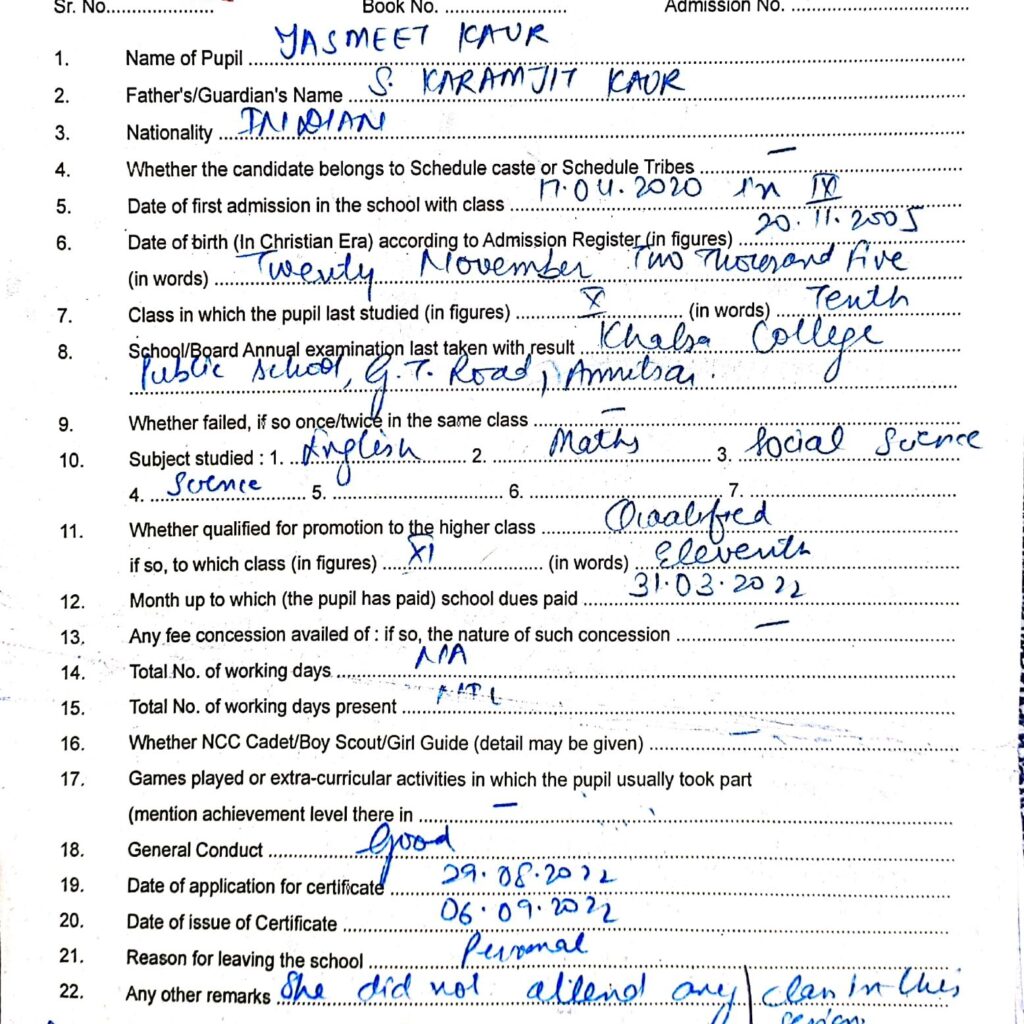 Sr. No..................... Book No. ........................ Admission No. ...................................
1. Name of Pupil JASMEET KAUR
2. Father's/Guardian's Name S. KARAMJIT KAUR
3. Nationality INDIAN
4. Whether the candidate belongs to Schedule caste or Schedule Tribes —
5. Date of first admission in the school with class 17.04.2020 in IX
6. Date of birth (In Christian Era) according to Admission Register (in figures) 20.11.2005
(in words) Twenty November Two Thousand Five
7. Class in which the pupil last studied (in figures) X (in words) Tenth
8. School/Board Annual examination last taken with result Khalsa College
Public School, G.T. Road, Amritsar.
9. Whether failed, if so once/twice in the same class —
10. Subject studied : 1. English 2. Maths 3. Social Science
4. Science 5. 6. 7.
11. Whether qualified for promotion to the higher class Qualified
if so, to which class (in figures) XI (in words) Eleventh
12. Month up to which (the pupil has paid) school dues paid 31.03.2022
13. Any fee concession availed of : if so, the nature of such concession —
14. Total No. of working days N/A
15. Total No. of working days present
16. Whether NCC Cadet/Boy Scout/Girl Guide (detail may be given) —
17. Games played or extra-curricular activities in which the pupil usually took part
(mention achievement level there in —
18. General Conduct Good
19. Date of application for certificate 29.08.2022
20. Date of issue of Certificate 06.09.2022
21. Reason for leaving the school Personal
22. Any other remarks She did not attend any class in this